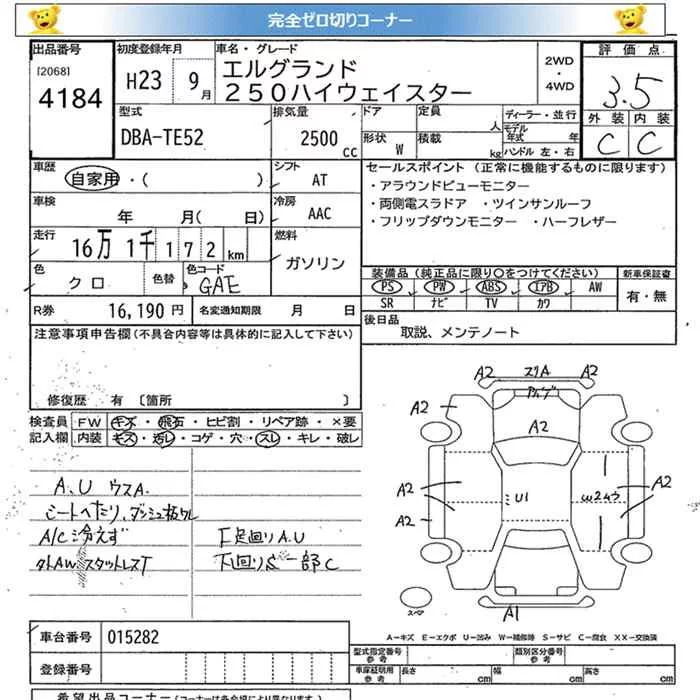 完全ゼロ切りコーナー
出品番号
[2068]
4184
初度登録年月
H23 9月
車名・グレード
エルグランド
250ハイウェイスター
2WD
・
4WD
評価点
3.5
外装 内装
C C
型式
DBA-TE52
排気量
2500 cc
ドア 定員 人
形状 W 積載 kg
ディーラー・並行
モデル年式 年
ハンドル 左・右
車歴
自家用・( )
シフト
AT
車検
年 月( 日)
冷房
AAC
走行
16万 1千 172 km
燃料
ガソリン
色
クロ
色替
色コード
GAE
R券 16,190 円
名変通知期限 月 日
セールスポイント (正常に機能するものに限ります)
・アラウンドビューモニター
・両側電スラドア ・ツインサンルーフ
・フリップダウンモニター ・ハーフレザー
装備品(純正品に限り○をつけてください) 新車保証書
PS PW ABS エアB AW
SR ナビ TV カワ
有・無
後日品
取説、メンテノート
注意事項申告欄(不具合内容等は具体的に記入して下さい)
修復歴 有 [箇所 ]
検査員
記入欄
FW キズ・飛石・ヒビ割・リペア跡・×要
内装 キズ・汚レ・コゲ・穴・スレ・キレ・破レ
A、U ウスA.
シートへたり、ダッシュ板ワレ
A/C冷えず
外AWスタットレスT
下足回りA.U
下回りS一部C
A2 スリA A2
A2 A2
A2
A2 U1 W2
A2 A2
スペア
A1
A-キズ E-エクボ U-凹み W-補修跡 S-サビ C-腐食 XX-交換済
車台番号 015282
登録番号
型式指定番号
参考
類別区分番号
参考
車庫証明用
参考
長さ cm 幅 cm 高さ cm
希望出品コーナー